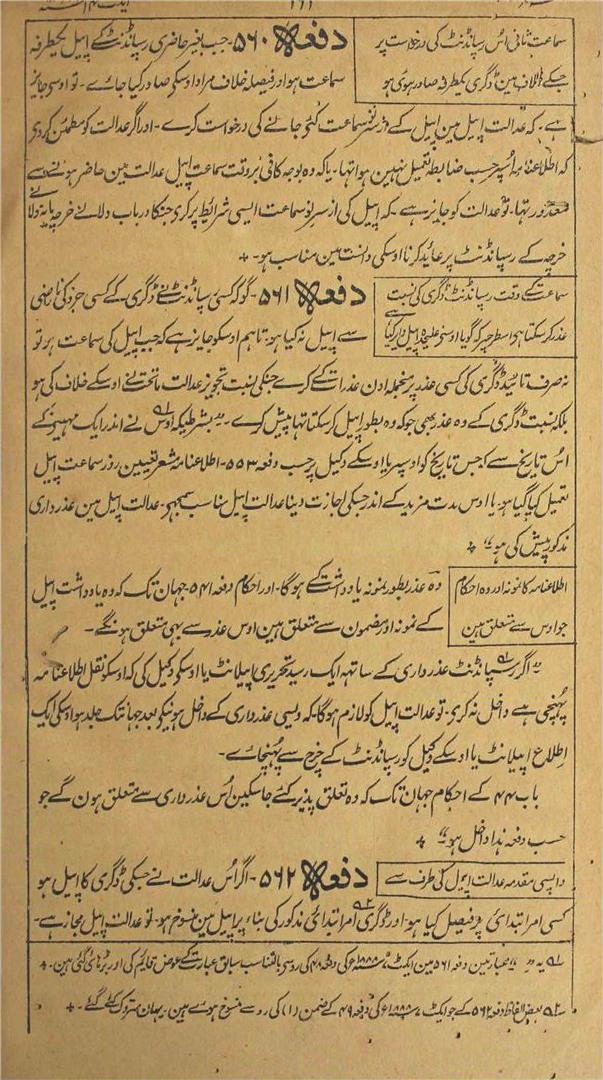 سماعت ثانی اُس رسپانڈنٹ کی درخواست پر
جسکے خلاف مین ڈگری یکطرفہ صادر ہوئی ہو
دفعہ ۵۶۰- جب بغیر حاضری رسپانڈنٹ کے اپیل یکطرفہ
سماعت ہو اور فیصلہ خلاف مراد اوسکی صادر کیا جائے - تو اوسے جایز
ہے - کہ عدالت اپیل مین اپیل کے از سر نو سماعت کئے جانے کی درخواست کرے - اور اگر عدالت کو مطمئن کردی
کہ اطلاعنامہ اُسپر حسب ضابطہ تعمیل نہین ہوا تہا - یا کہ وہ بوجہ کافی بروقت سماعت اپیل عدالت مین حاضر ہونے سے
معذور رہا - تو عدالت کو جایز ہے - کہ اپیل کی از سر نو سماعت ایسی شرائط پر کری جنکا درباب دلانے خرچہ یا نہ دلانے
خرچہ کے رسپانڈنٹ پر عائد کرنا اوسکی دانست مین مناسب ہو - +
سماعت کے وقت رسپانڈنٹ ڈگری کی نسبت
عذر کر سکتا ہی اسطرح پر کہ گویا اوسنی علیحدہ اپیل دایر کیا ہے
دفعہ ۵۶۱- گو کہ کسی رسپانڈنٹ نے ڈگری کے کسی جزو کی ناراضی
سے اپیل نہ کیا ہو - تاہم اوسکو جایز ہے کہ جب اپیل کی سماعت ہو تو
نہ صرف تائید ڈگری کی کسی عذر پر منجملہ اون عذرات کے کرے جنکی نسبت تجویز عدالت ماتحت نے اوسکے خلاف کی ہو
بلکہ نسبت ڈگری کے وہ عذر بھی جو کہ وہ بطور اپیل کر سکتا تہا پیش کرے - "بشرطیکہ اوس نے اندر ایک مہینے کے
اُس تاریخ سے کہ جس تاریخ کو اوسپر یا اوسکے وکیل پر حسب دفعہ ۵۵۳- اطلاعنامہ مشعر تعیین روز سماعت اپیل
تعمیل کیا گیا ہو - یا اوس مدت مزید کے اندر جسکی اجازت دینا عدالت اپیل مناسب سمجہے - عدالت اپیل مین عذرداری
مذکور پیش کی ہو" +
اطلاعنامہ کا نمونہ اور وہ احکام
جو اوس سے متعلق ہین
وہ عذر بطور نمونہ یادداشت کے ہوگا - اور احکام دفعہ ۵۴۱- جہان تک کہ وہ یادداشت اپیل
کے نمونہ اور مضمون سے متعلق ہین اوس عذر سے بہی متعلق ہونگے -
"اگر رسپانڈنٹ عذرداری کے ساتہہ ایک رسید تحریری اپیلانٹ یا اوسکو وکیل کی کہ اوسکو نقل اطلاعنامہ
پہنچی ہے داخل نہ کری - تو عدالت اپیل کو لازم ہوگا کہ ویسی عذرداری کے داخل ہونیکے بعد جہانتک جلد ہو اوسکی ایک
اطلاع اپیلانٹ یا اوسکے وکیل کو رسپانڈنٹ کے خرچ سے پہنچائے -
باب ۴۴ کے احکام جہان تک کہ وہ تعلق پذیر کئے جاسکین اُس عذرداری سے متعلق ہون گے جو
حسب دفعہ ہذا داخل ہو" +
واپسی مقدمہ عدالت اپیل کی طرف سے
دفعہ ۵۶۲- اگر اُس عدالت نے جسکی ڈگری کا اپیل ہو
کسی امر ابتدائی پر فیصل کیا ہو - اور ڈگری امر ابتدائی مذکور کی بناء پر اپیل مین منسوخ ہو - تو عدالت اپیل مجاز ہے -
۹۱ یہ " " عبارتین دفعہ ۵۶۱ مین ایکٹ ۷ سنہ ۱۸۸۸ع کی دفعہ ۴۸ کی روسی بالتناسب سابق عبارت کے عوض قائم کی اور بڑہائی گئی ہین - +
۹۲ بعض الفاظ دفعہ ۵۶۲ کے جو ایکٹ ۷ سنہ ۱۸۸۸ع کی دفعہ ۴۹ کے ضمن (۱) کی رو سے منسوخ ہوئے ہین - یہان متروک کئے گئے - +